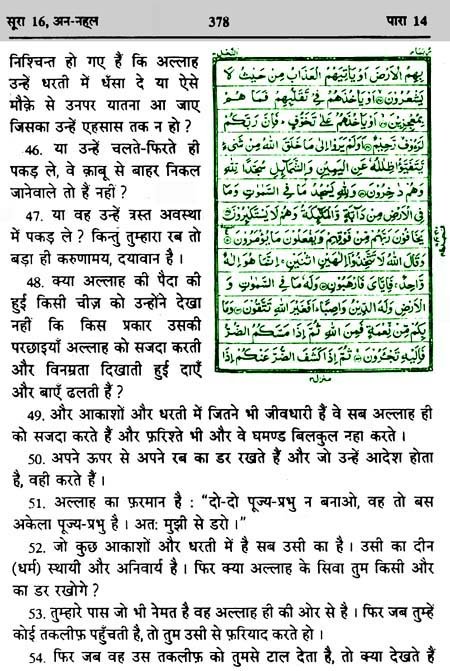 सूरा 16, अन-नह्ल 378 पारा 14
निश्चिन्त हो गए हैं कि अल्लाह
उन्हें धरती में धँसा दे या ऐसे
मौक़े से उनपर यातना आ जाए
जिसका उन्हें एहसास तक न हो ?
46. या उन्हें चलते-फिरते ही
पकड़ ले, वे क़ाबू से बाहर निकल
जानेवाले तो हैं नहीं ?
47. या वह उन्हें त्रस्त अवस्था
में पकड़ ले ? किन्तु तुम्हारा रब तो
बड़ा ही करुणामय, दयावान है ।
48. क्या अल्लाह की पैदा की
हुई किसी चीज़ को उन्होंने देखा
नहीं कि किस प्रकार उसकी
परछाइयाँ अल्लाह को सजदा करती
और विनम्रता दिखाती हुई दाएँ
और बाएँ ढलती हैं ?
بِهِمُ الْاَرْضَ اَوْ يَاْتِيَهُمُ الْعَذَابُ مِنْ حَيْثُ لَا
يَشْعُرُوْنَ اَوْ يَاْخُذَهُمْ فِيْ تَقَلُّبِهِمْ فَمَا هُمْ
بِمُعْجِزِيْنَ اَوْ يَاْخُذَهُمْ عَلٰى تَخَوُّفٍ فَاِنَّ رَبَّكُمْ
لَرَءُوْفٌ رَّحِيْمٌ اَوَلَمْ يَرَوْا اِلٰى مَا خَلَقَ اللّٰهُ مِنْ شَيْءٍ
يَّتَفَيَّؤُا ظِلٰلُهٗ عَنِ الْيَمِيْنِ وَالشَّمَآئِلِ سُجَّدًا لِّلّٰهِ
وَهُمْ دٰخِرُوْنَ وَلِلّٰهِ يَسْجُدُ مَا فِي السَّمٰوٰتِ وَمَا
فِي الْاَرْضِ مِنْ دَآبَّةٍ وَّالْمَلٰٓئِكَةُ وَهُمْ لَا يَسْتَكْبِرُوْنَ
يَخَافُوْنَ رَبَّهُمْ مِّنْ فَوْقِهِمْ وَيَفْعَلُوْنَ مَا يُؤْمَرُوْنَ
وَقَالَ اللّٰهُ لَا تَتَّخِذُوْٓا اِلٰهَيْنِ اثْنَيْنِ اِنَّمَا هُوَ اِلٰهٌ
وَّاحِدٌ فَاِيَّايَ فَارْهَبُوْنِ وَلَهٗ مَا فِي السَّمٰوٰتِ وَ
الْاَرْضِ وَلَهُ الدِّيْنُ وَاصِبًا اَفَغَيْرَ اللّٰهِ تَتَّقُوْنَ وَمَا
بِكُمْ مِّنْ نِّعْمَةٍ فَمِنَ اللّٰهِ ثُمَّ اِذَا مَسَّكُمُ الضُّرُّ
فَاِلَيْهِ تَجْـَٔرُوْنَ ثُمَّ اِذَا كَشَفَ الضُّرَّ عَنْكُمْ اِذَا
49. और आकाशों और धरती में जितने भी जीवधारी हैं वे सब अल्लाह ही
को सजदा करते हैं और फ़रिश्ते भी और वे घमण्ड बिलकुल नहा करते ।
50. अपने ऊपर से अपने रब का डर रखते हैं और जो उन्हें आदेश होता
है, वही करते हैं ।
51. अल्लाह का फ़रमान है : “दो-दो पूज्य-प्रभु न बनाओ, वह तो बस
अकेला पूज्य-प्रभु है । अतः मुझी से डरो ।”
52. जो कुछ आकाशों और धरती में है सब उसी का है । उसी का दीन
(धर्म) स्थायी और अनिवार्य है । फिर क्या अल्लाह के सिवा तुम किसी और
का डर रखोगे ?
53. तुम्हारे पास जो भी नेमत है वह अल्लाह ही की ओर से है । फिर जब तुम्हें
कोई तकलीफ़ पहुँचती है, तो तुम उसी से फ़रियाद करते हो ।
54. फिर जब वह उस तकलीफ़ को तुमसे टाल देता है, तो क्या देखते हैं